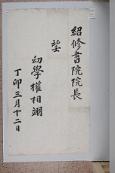 紹修書院院長
望
幼學權相翊
丁卯三月十二日